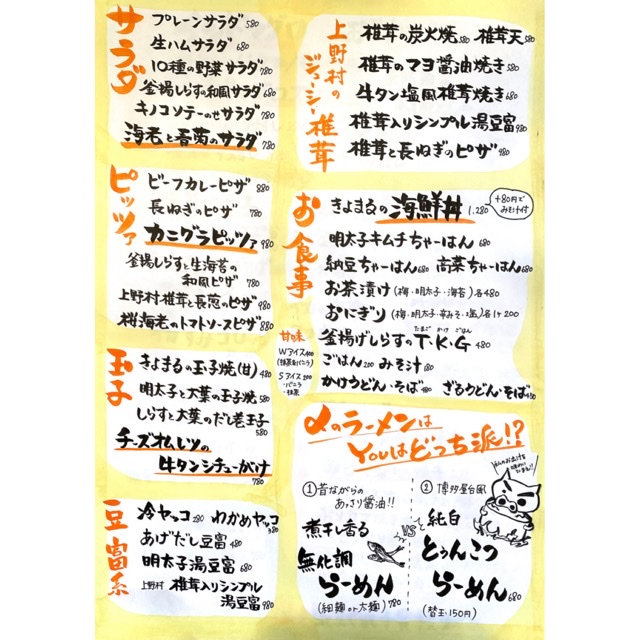 サラダ
プレーンサラダ 580
生ハムサラダ 680
10種の野菜サラダ 780
釜揚しらすの和風サラダ 680
キノコソテーのせサラダ 780
海老と春菊のサラダ 780
ピッツァ
ビーフカレーピザ 880
長ねぎのピザ 780
カニグラピッツァ 980
釜揚しらすと生海苔の
和風ピザ 780
上野村椎茸と長葱のピザ 980
桜海老のトマトソースピザ 880
玉子
きよまるの玉子焼(甘) 480
明太子と大葉の玉子焼 580
しらすと大葉のだし巻玉子 580
チーズオムレツの
牛タンシチューがけ 780
豆富系
冷ヤッコ 280 わかめヤッコ 380
あげだし豆富 480
明太子湯豆富 680
上野村 椎茸入りシンプル
湯豆富 980
上野村のジューシー椎茸
椎茸の炭火焼 580 椎茸天 580
椎茸のマヨ醤油焼き 580
牛タン塩風椎茸焼き 680
椎茸入りシンプル湯豆富 980
椎茸と長ねぎのピザ 980
お食事
きよまるの海鮮丼 1,280
+80円で
みそ汁付
明太子キムチちゃーはん 680
納豆ちゃーはん 680 高菜ちゃーはん 680
お茶漬け(梅・明太子・海苔)各480
おにぎり(梅・明太子・辛みそ・塩)各1ケ200
釜揚げしらすのT・K・G 480
たまご かけ ごはん
ごはん 200 みそ汁 180
かけうどん・そば 480 ざるうどん・そば 480
甘味
Wアイス 400
(抹茶&バニラ)
Sアイス 200
・バニラ
・抹茶
〆のラーメンは
YOUはどっち派!?
①昔ながらの
あっさり醤油!!
煮干し香る
無化調
らーめん
(細麺or太麺) 780
VS
②博多屋台風
純白
とぅんこつ
らーめん 680
(替玉・150円)